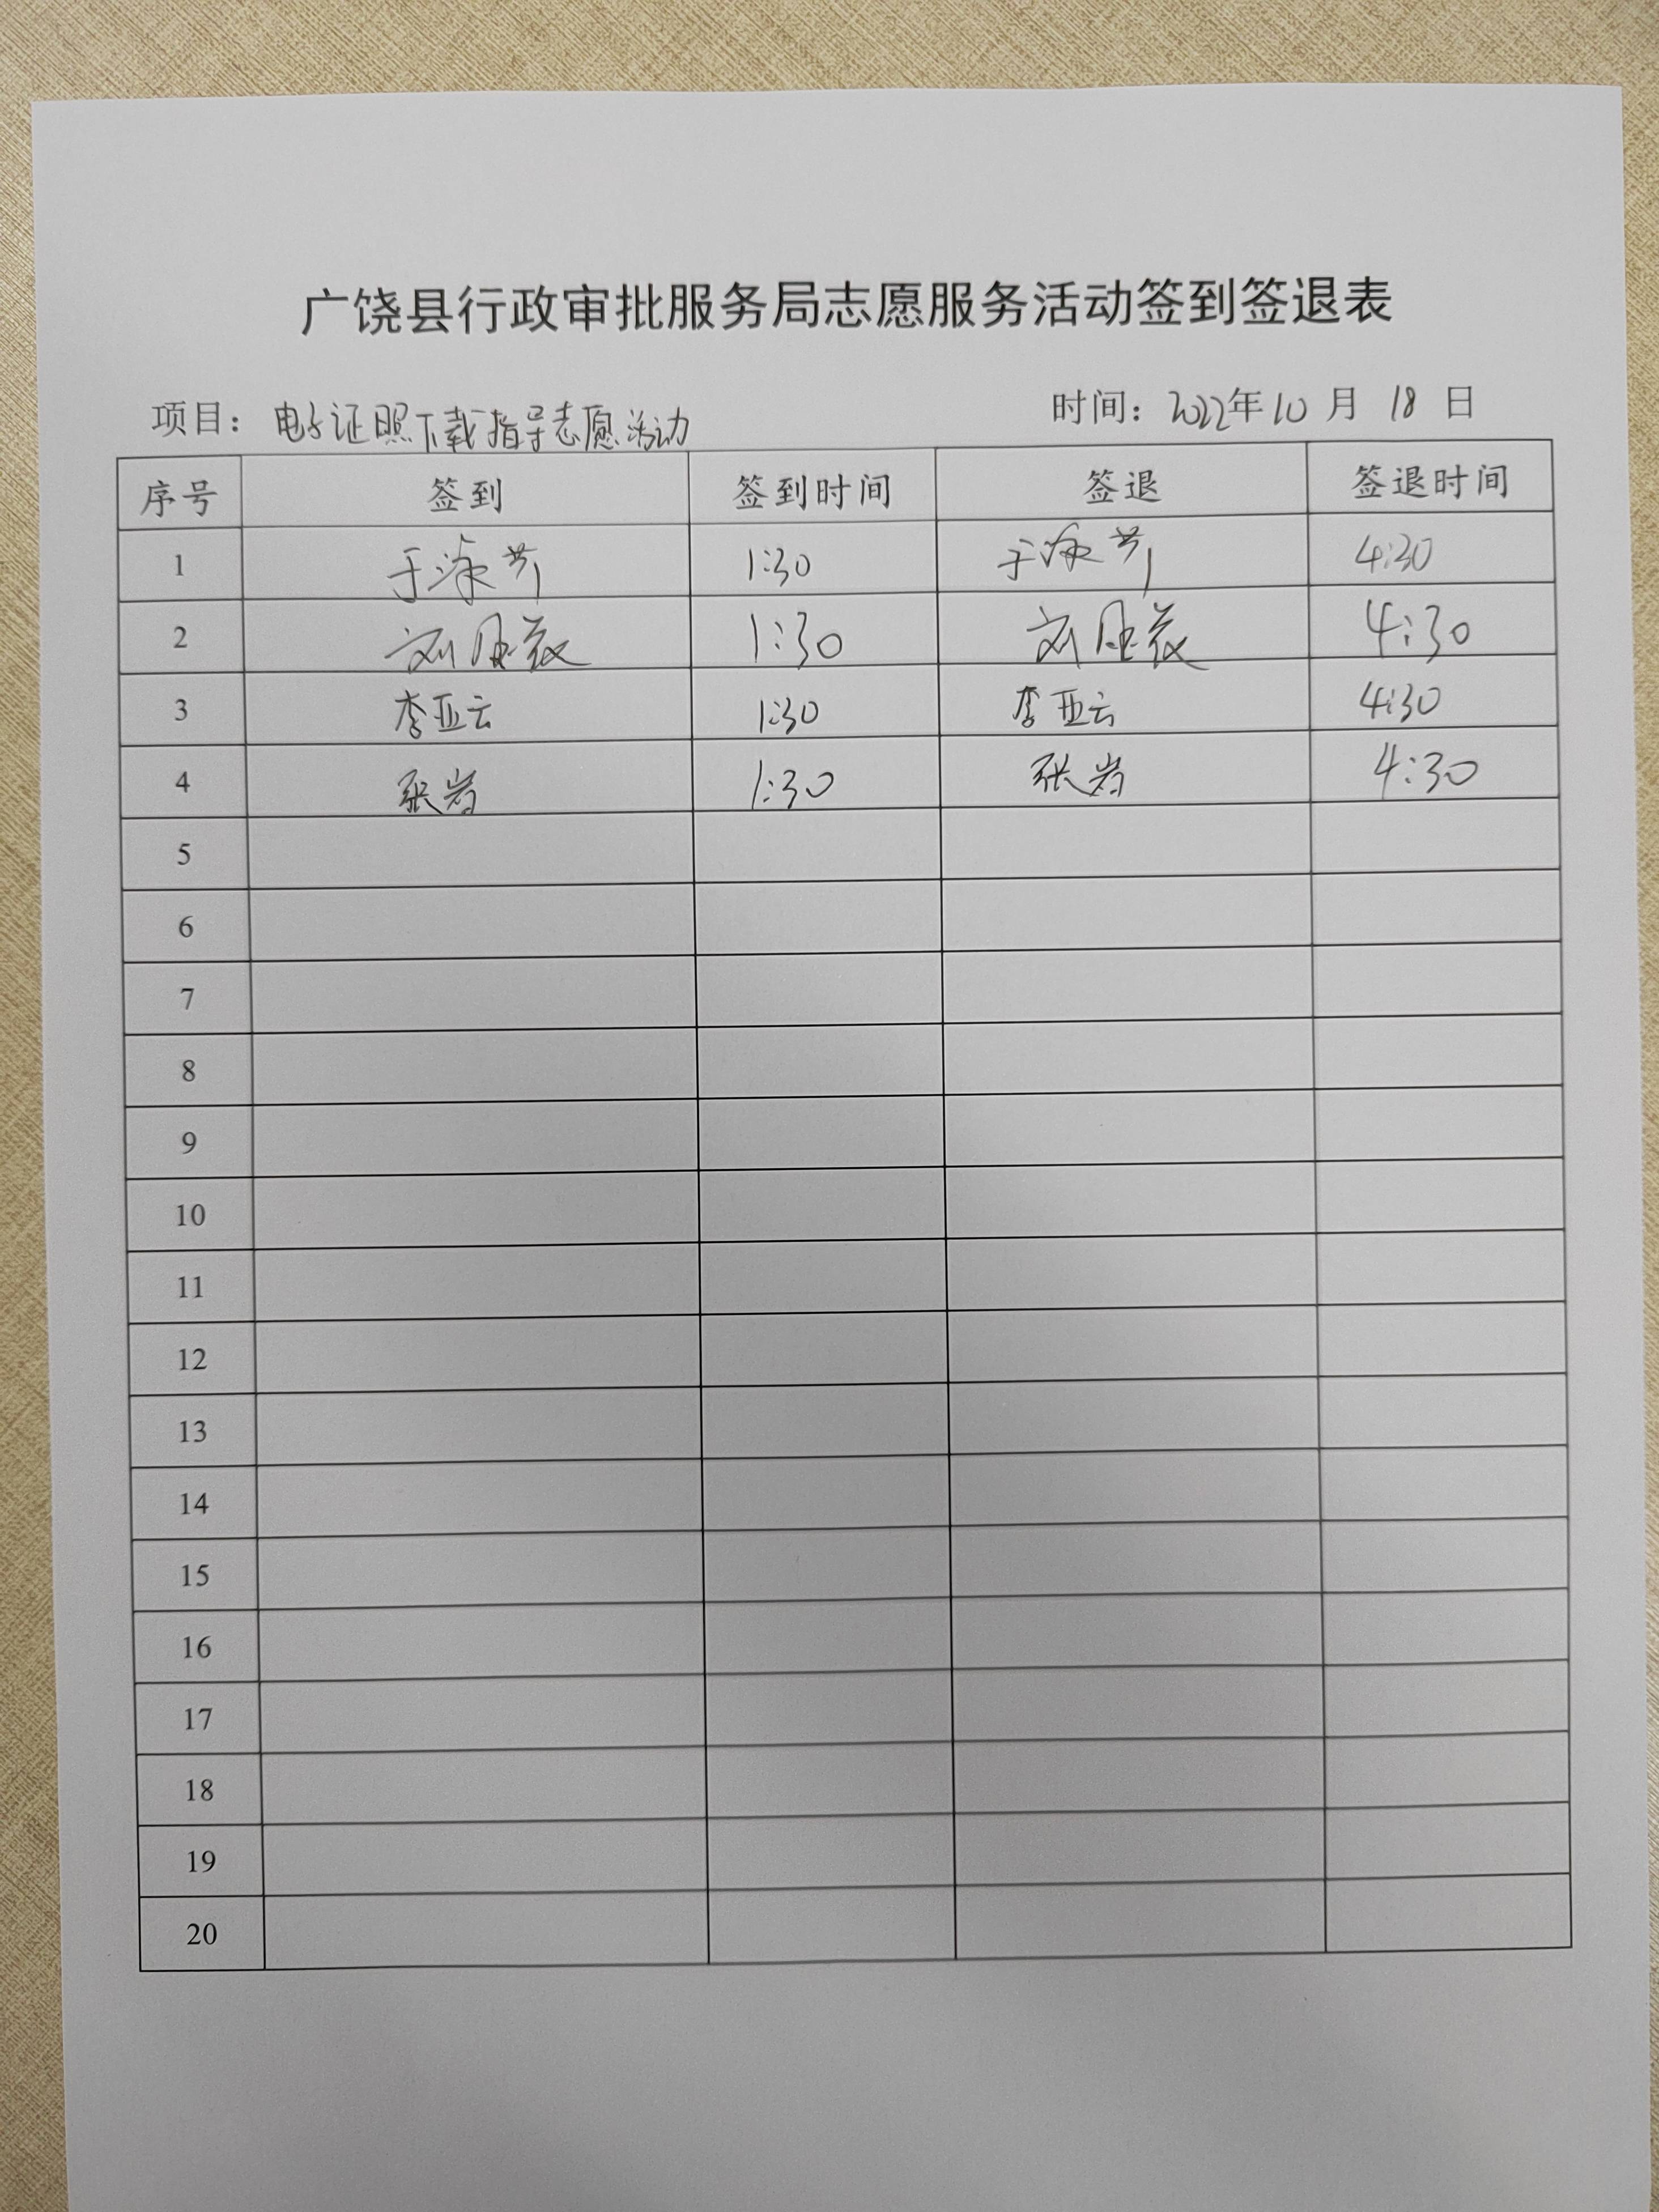 广饶县行政审批服务局志愿服务活动签到签退表
项目：电子证照下载指导志愿活动 时间：2022年10月18日
序号 签到 签到时间 签退 签退时间
1 于 1:30 于 4:30
2 刘 1:30 刘 4:30
3 李亚云 1:30 李亚云 4:30
4 张岩 1:30 张岩 4:30
5
6
7
8
9
10
11
12
13
14
15
16
17
18
19
20